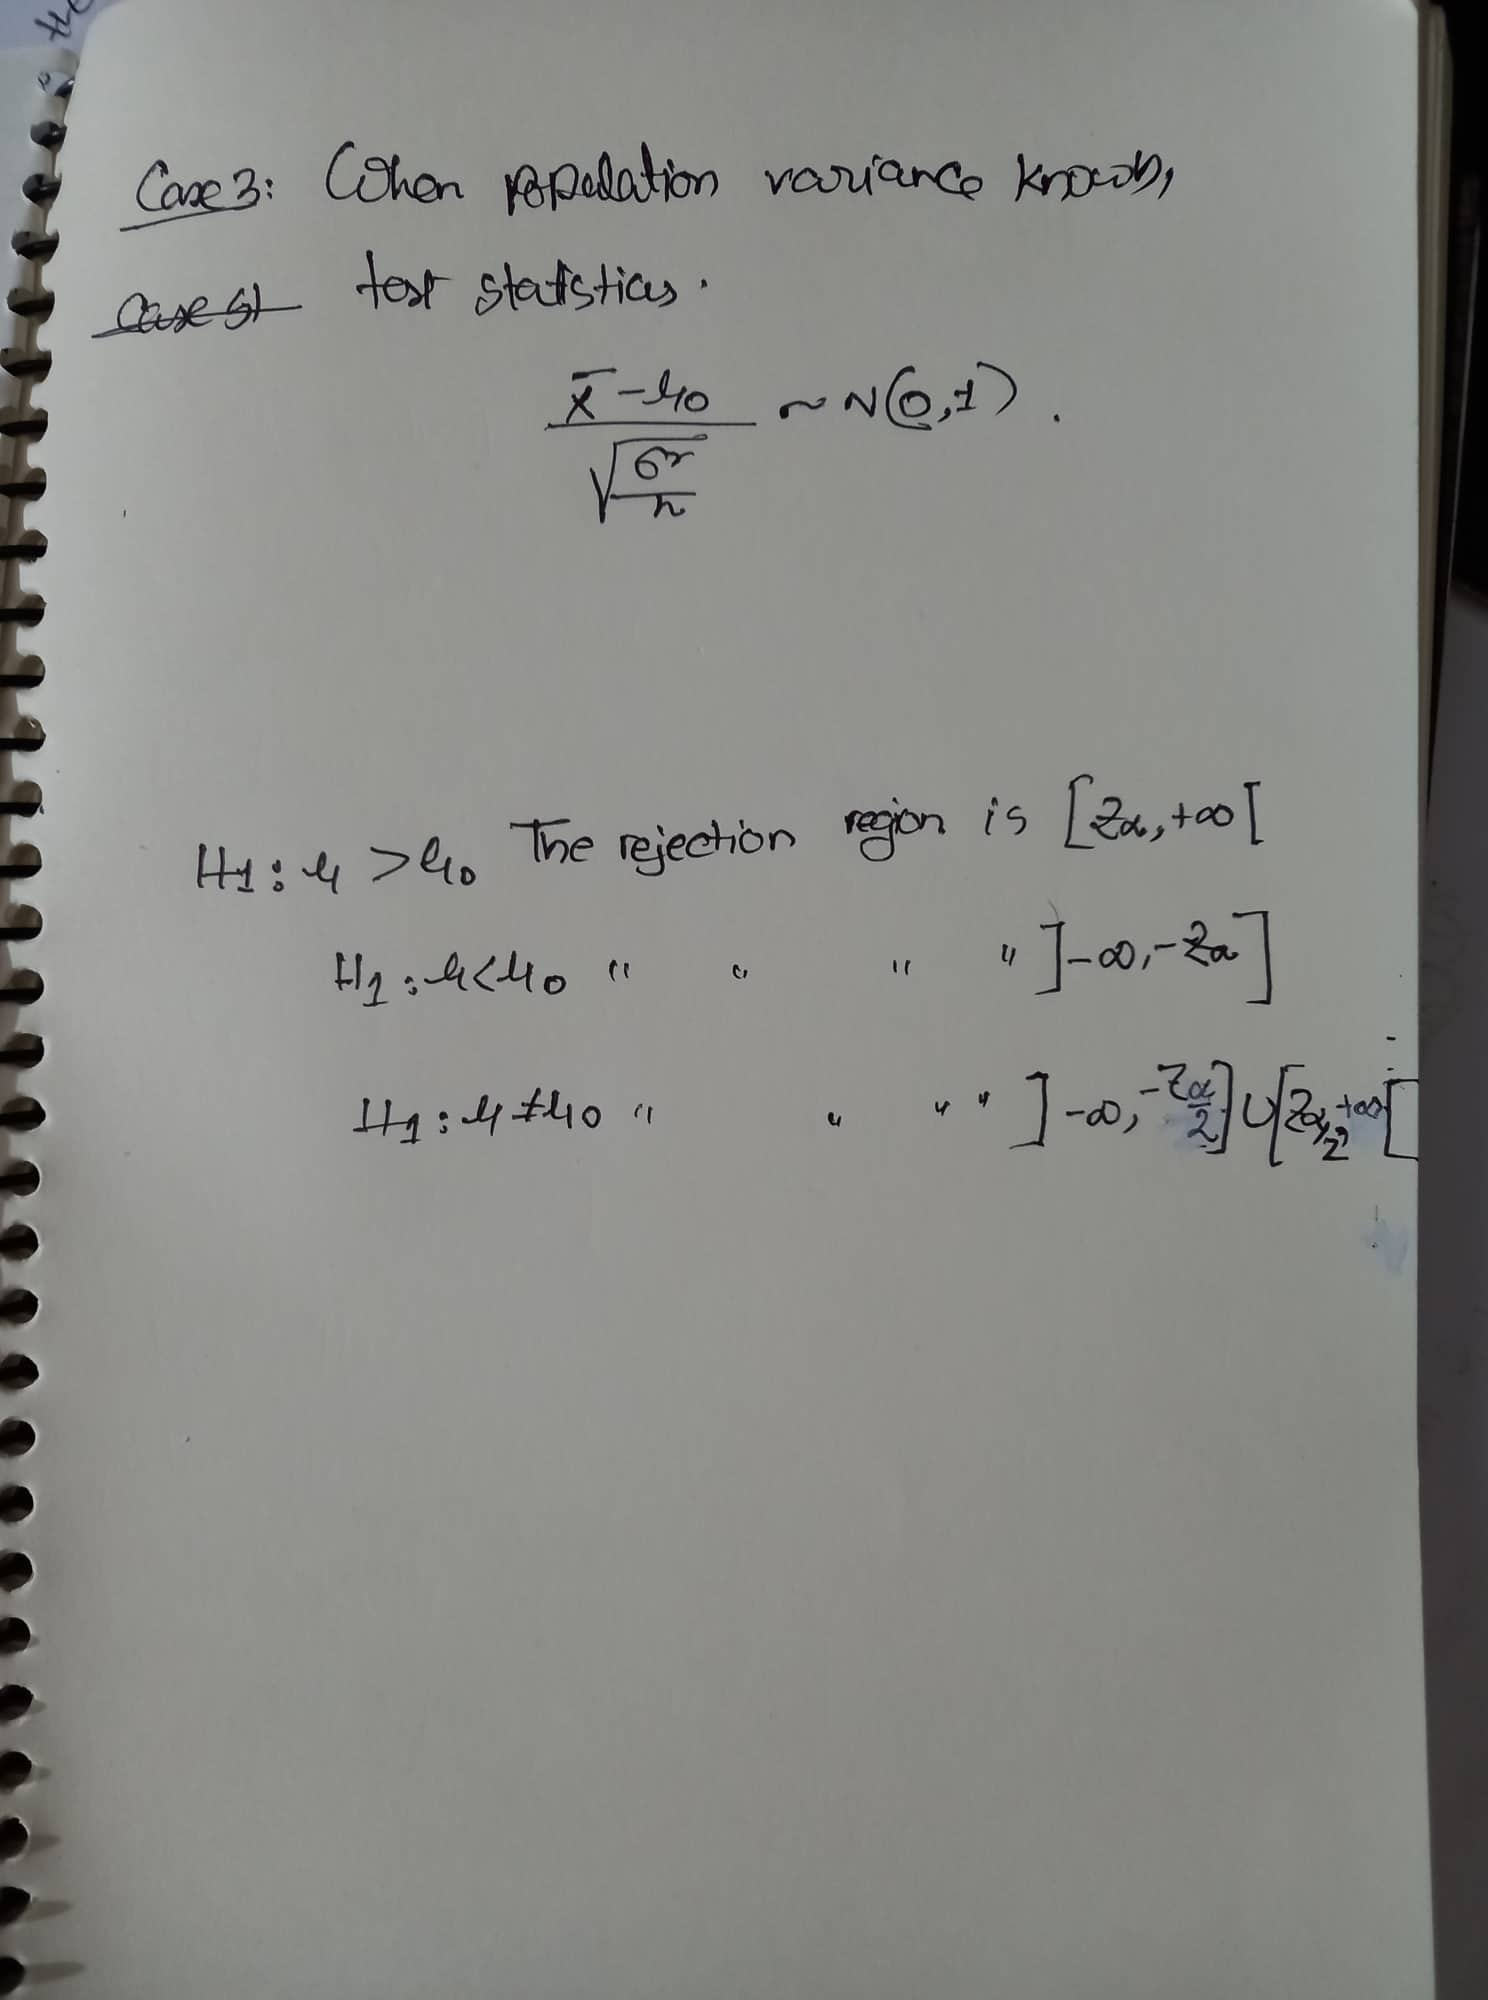 Case 3: When population variance known,
Case 51 test statistics.
x̄ - μ0 / √(σ²/n) ~ N(0,1).
H1: μ > μ0 The rejection region is [Zα, +∞[
H1: μ < μ0 " " " " ]-∞, -Zα]
H1: μ ≠ μ0 " " " " ]-∞, -Zα/2] ∪ [Zα/2, +∞[